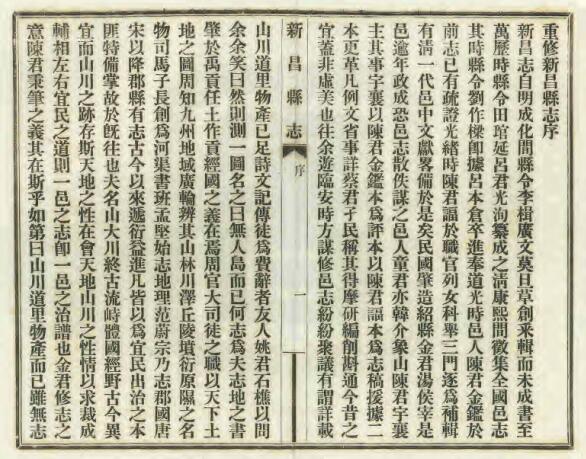 重修新昌縣志序
新昌志自明成化間縣令李楫廣文莫旦草創乘輯而未成書至
萬歷時縣令田琯延呂君光洵纂成之淸康熙間徵集全國邑志
其時縣令劉作樑卽據呂本倉卒進奉道光時邑人陳君金鑑於
前志已有疏證光緖時陳君謳於職官列女科舉三門逐爲補輯
有淸一代邑中文獻畧備於是矣民國肇造紹縣金君湯侯宰是
邑逾年政成恐邑志散佚謀之邑人童君亦韓介象山陳君宇襄
主其事宇襄以陳君金鑑本爲評本以陳君謳本爲志稿援據二
本更革凡例文省事詳察君子民稱其得摩研編削斟通今昔之
宜蓋非虛美也往余遊臨安時方謀修邑志紛紛聚議有謂詳載
新昌縣志
序
一
山川道里物產已足詩文記傳徒爲費辭者友人姚君石樵以問
余余笑曰然則測一圖名之曰無人島而已何志爲夫志地之書
肇於禹貢任土作貢經國之義在焉周官大司徒之職以天下土
地之圖周知九州地域廣輪辨其山林川澤丘陵墳衍原隰之名
物司馬子長創爲河渠書班孟堅始志地理范蔚宗乃志郡國唐
宋以降郡縣有志古今以來遞衍益進凡皆以爲宜民出治之本
匪特備掌故於旣往也夫名山大川終古流峙體國經野古今異
宜而山川之跡存斯天地之性在會天地山川之性情以求裁成
輔相左右宜民之道則一邑之志卽一邑之治譜也金君修志之
意陳君秉筆之義其在斯乎如第曰山川道里物產而已雖無志